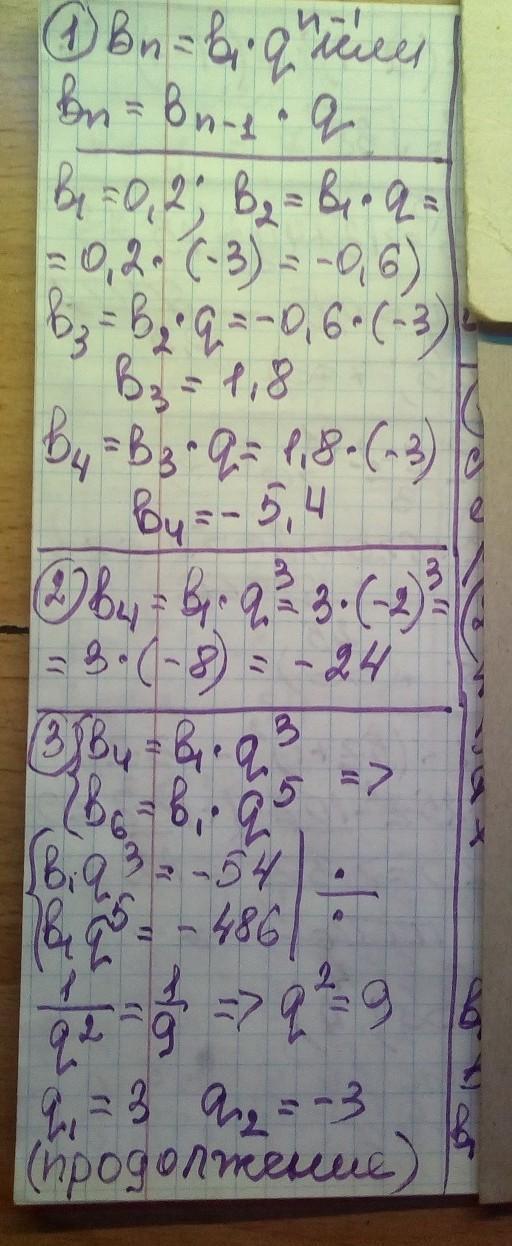 ① bₙ = b₁ · qⁿ⁻¹ или
bₙ = bₙ₋₁ · q
b₁ = 0,2; b₂ = b₁ · q =
= 0,2 · (-3) = -0,6)
b₃ = b₂ · q = -0,6 · (-3)
b₃ = 1,8
b₄ = b₃ · q = 1,8 · (-3)
b₄ = - 5,4
② b₄ = b₁ · q³ = 3 · (-2)³ =
= 3 · (-8) = -24
③ { b₄ = b₁ · q³
{ b₆ = b₁ · q⁵ =>
{ b₁ q³ = -54 | ÷
{ b₁ q⁵ = - 486 |
1/q² = 1/9 => q² = 9
q₁ = 3 q₂ = -3
(продолжение)